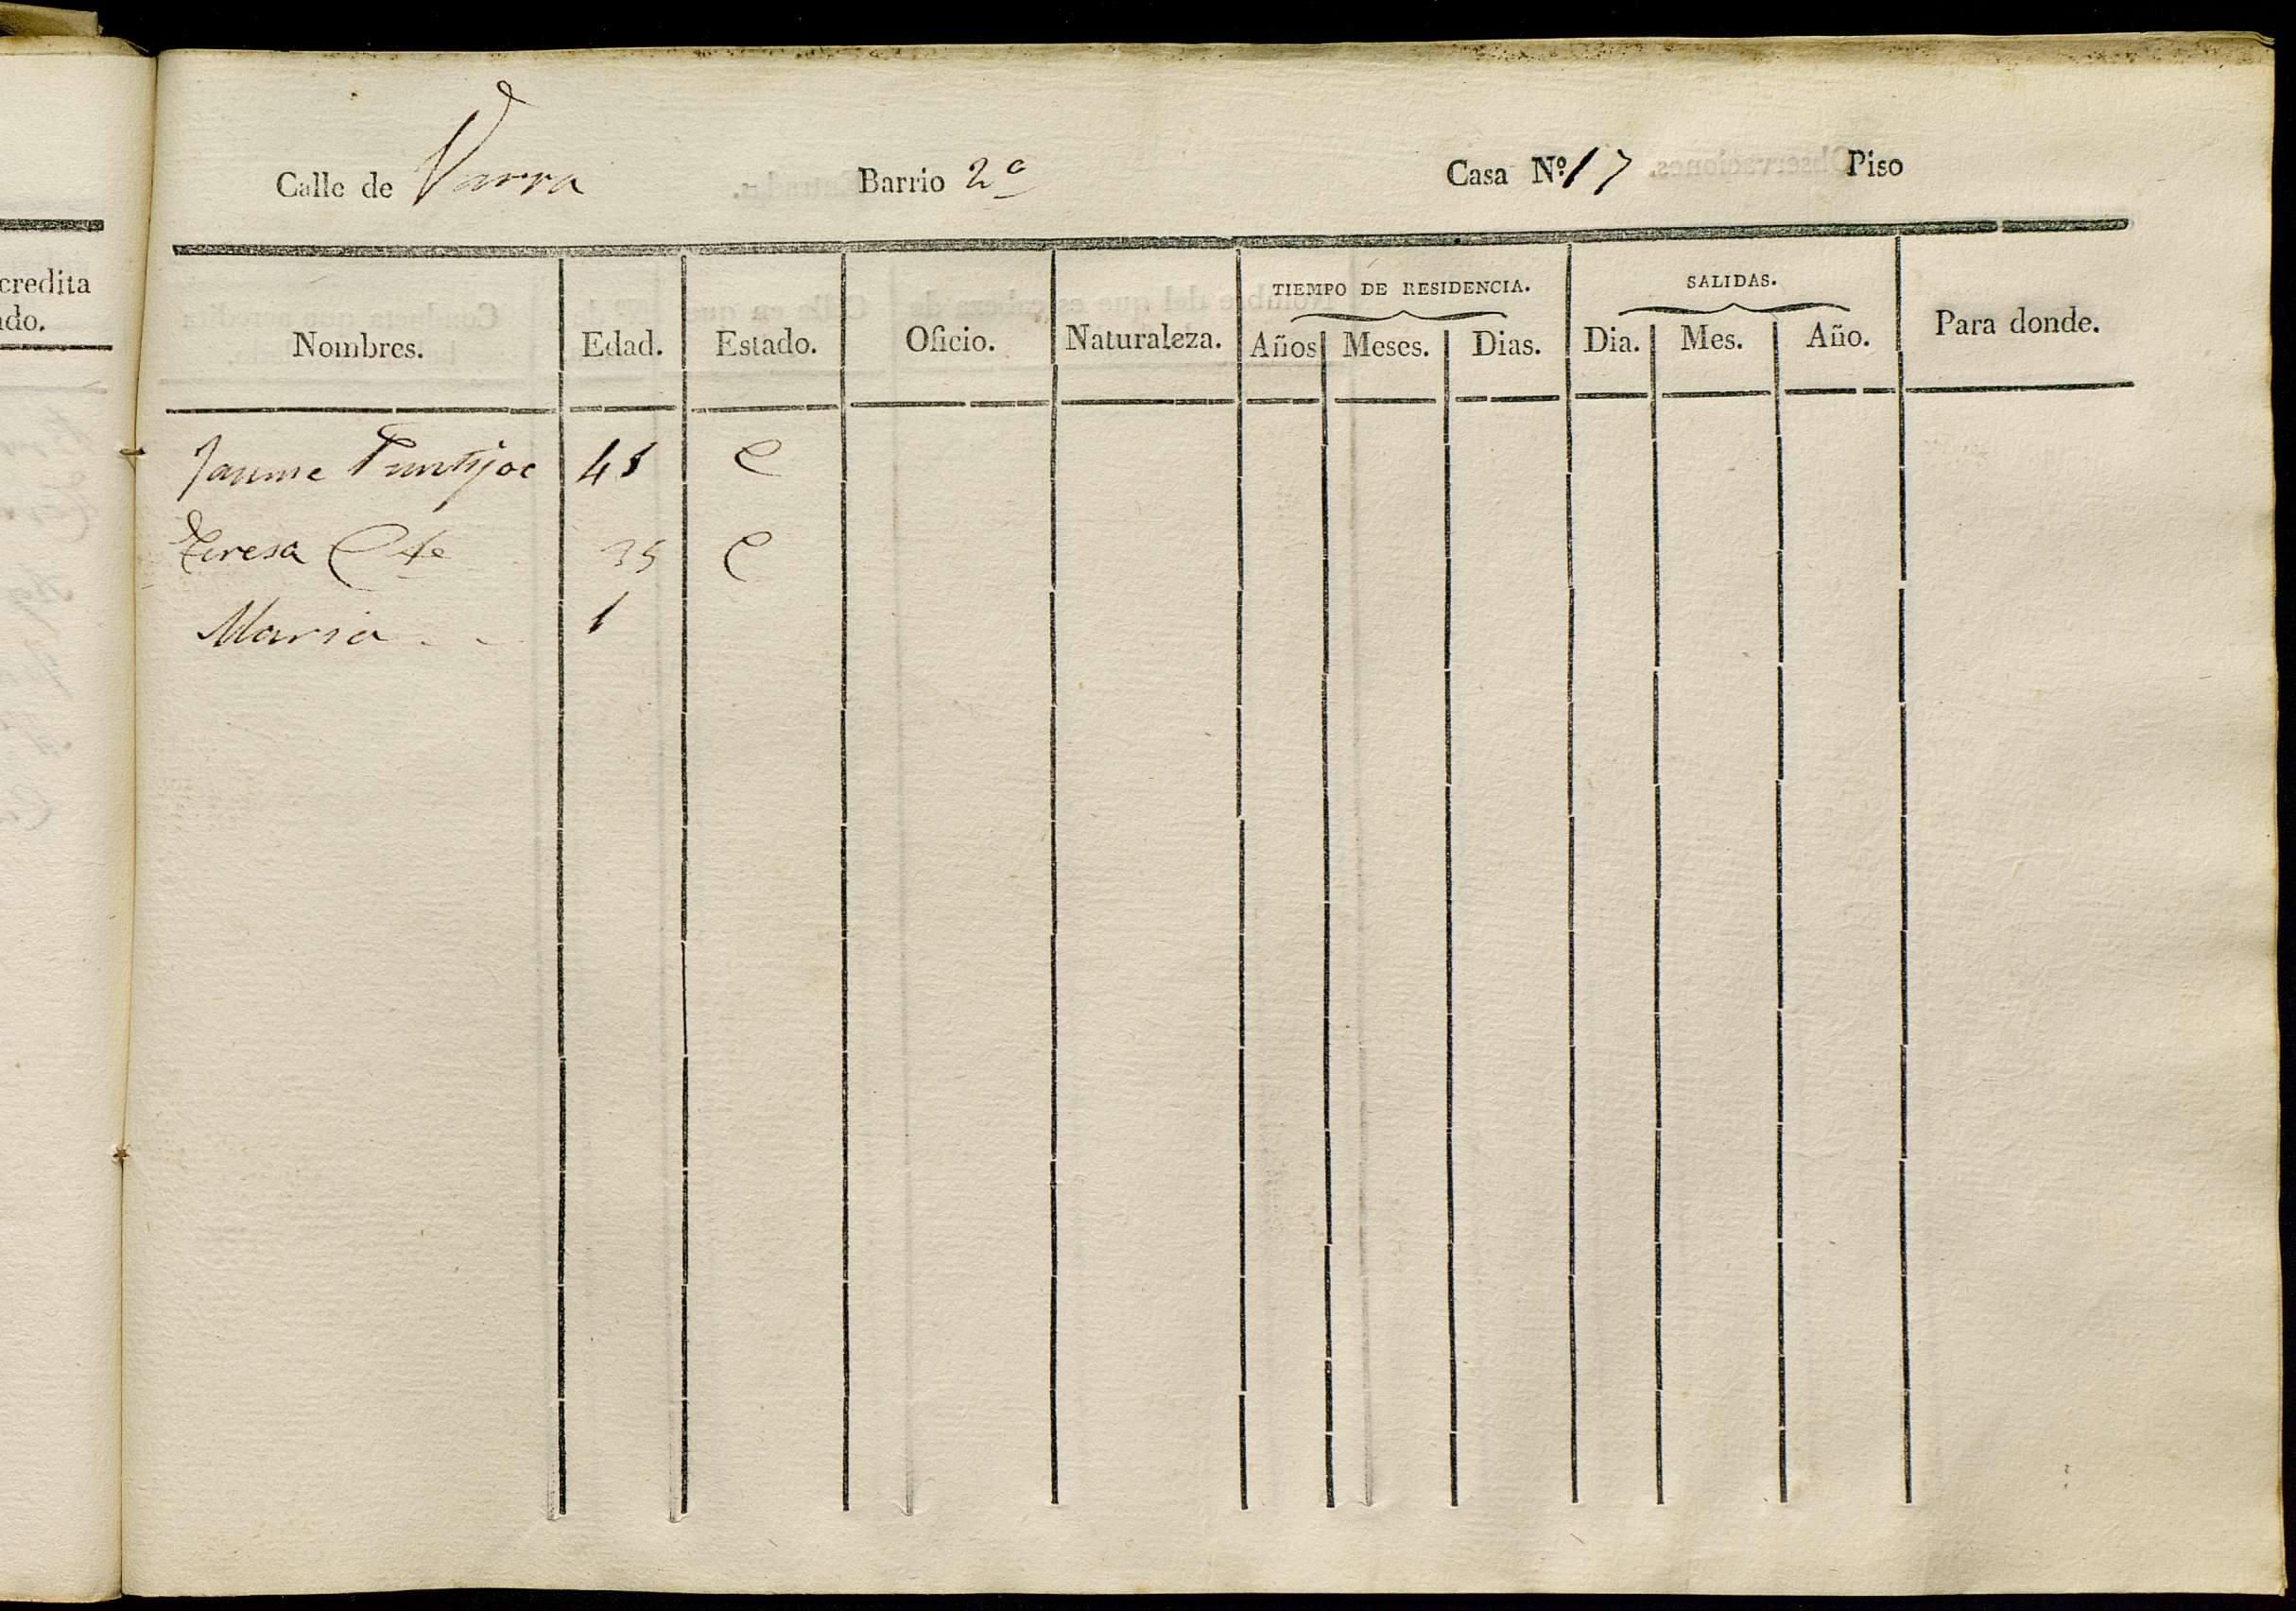 Calle de Varra Barrio 2º Casa Nº 17 Piso
credita
ado.
Nombres. Edad. Estado. Oficio. Naturaleza. TIEMPO DE RESIDENCIA. Años Meses. Dias. SALIDAS. Dia. Mes. Año. Para donde.
Jaume Puntijoc 41 C
Teresa 35 C
Maria - - 1